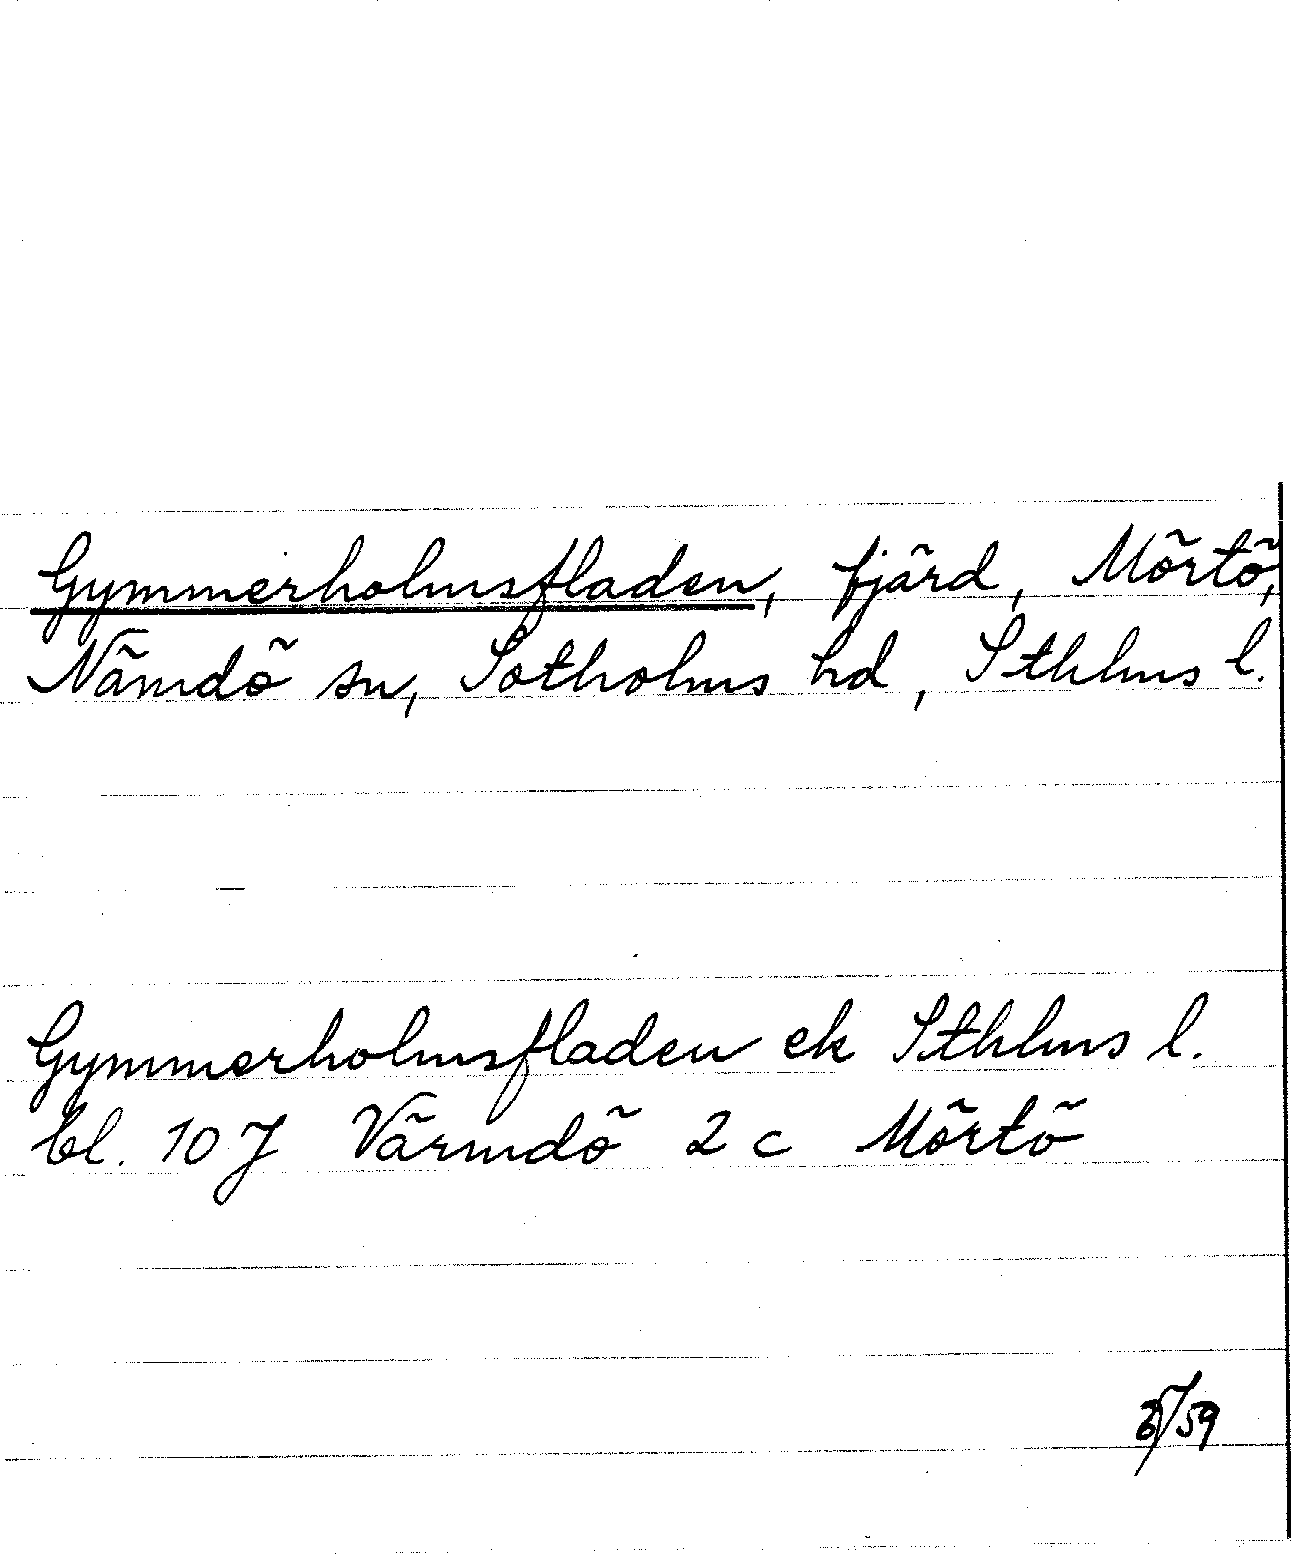 Gymmerholmsfladen, fjärd, Mörtö,
Nämdö sn, Sotholms hd, Sthlms l.
Gymmerholmsfladen ek Sthlms l.
bl. 10 J Värmdö 2 c Mörtö